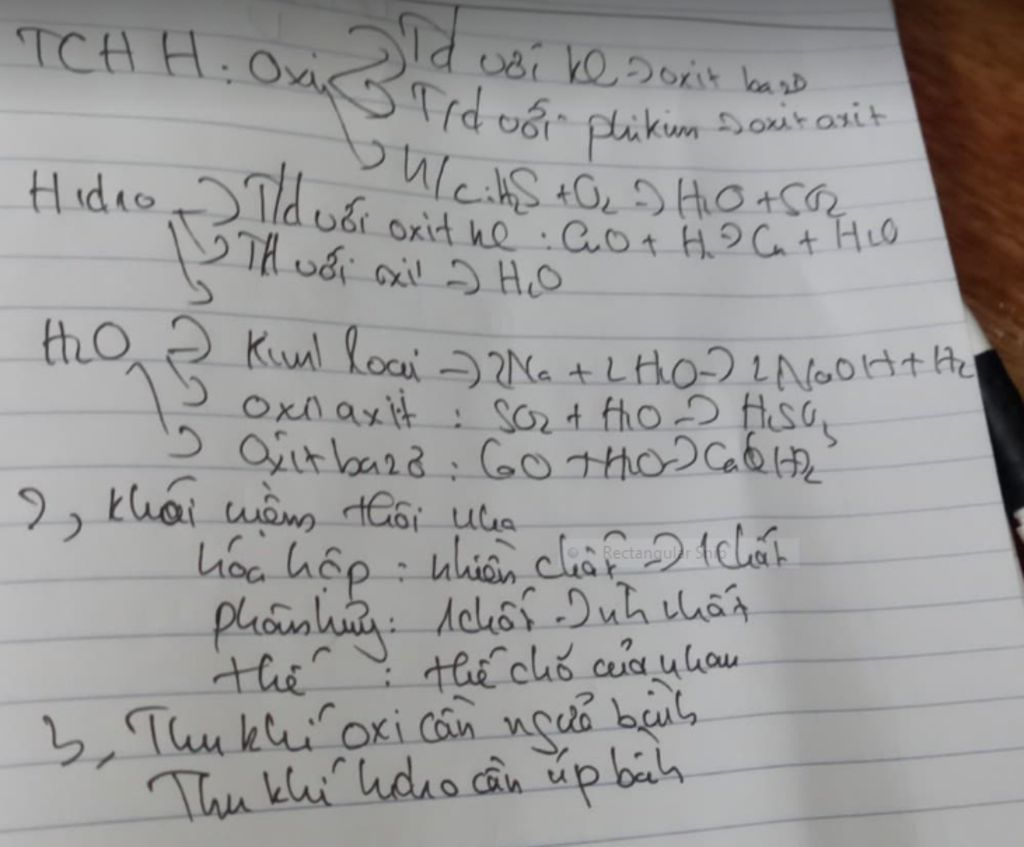 TCHH: Oxi → T/d với kl → oxit bazơ
→ T/d với phi kim → oxit axit
→ H/c: H2S + O2 → H2O + SO2
Hidro → T/d với oxit kl: CuO + H2 → Cu + H2O
→ T/d với oxi → H2O
H2O → Kim loai → 2Na + 2H2O → 2NaOH + H2
→ oxit axit : SO2 + H2O → H2SO3
→ Oxit bazơ : CaO + H2O → Ca(OH)2
2, Khái niêm thôi nha
© Rectangular Ship
hóa hợp : nhiền chất → 1 chất
phân hủy: 1 chất → nh chất
thế : thế chỗ của nhau
3, Thu khí oxi cần ngửa bình
Thu khí hdro cần úp bình